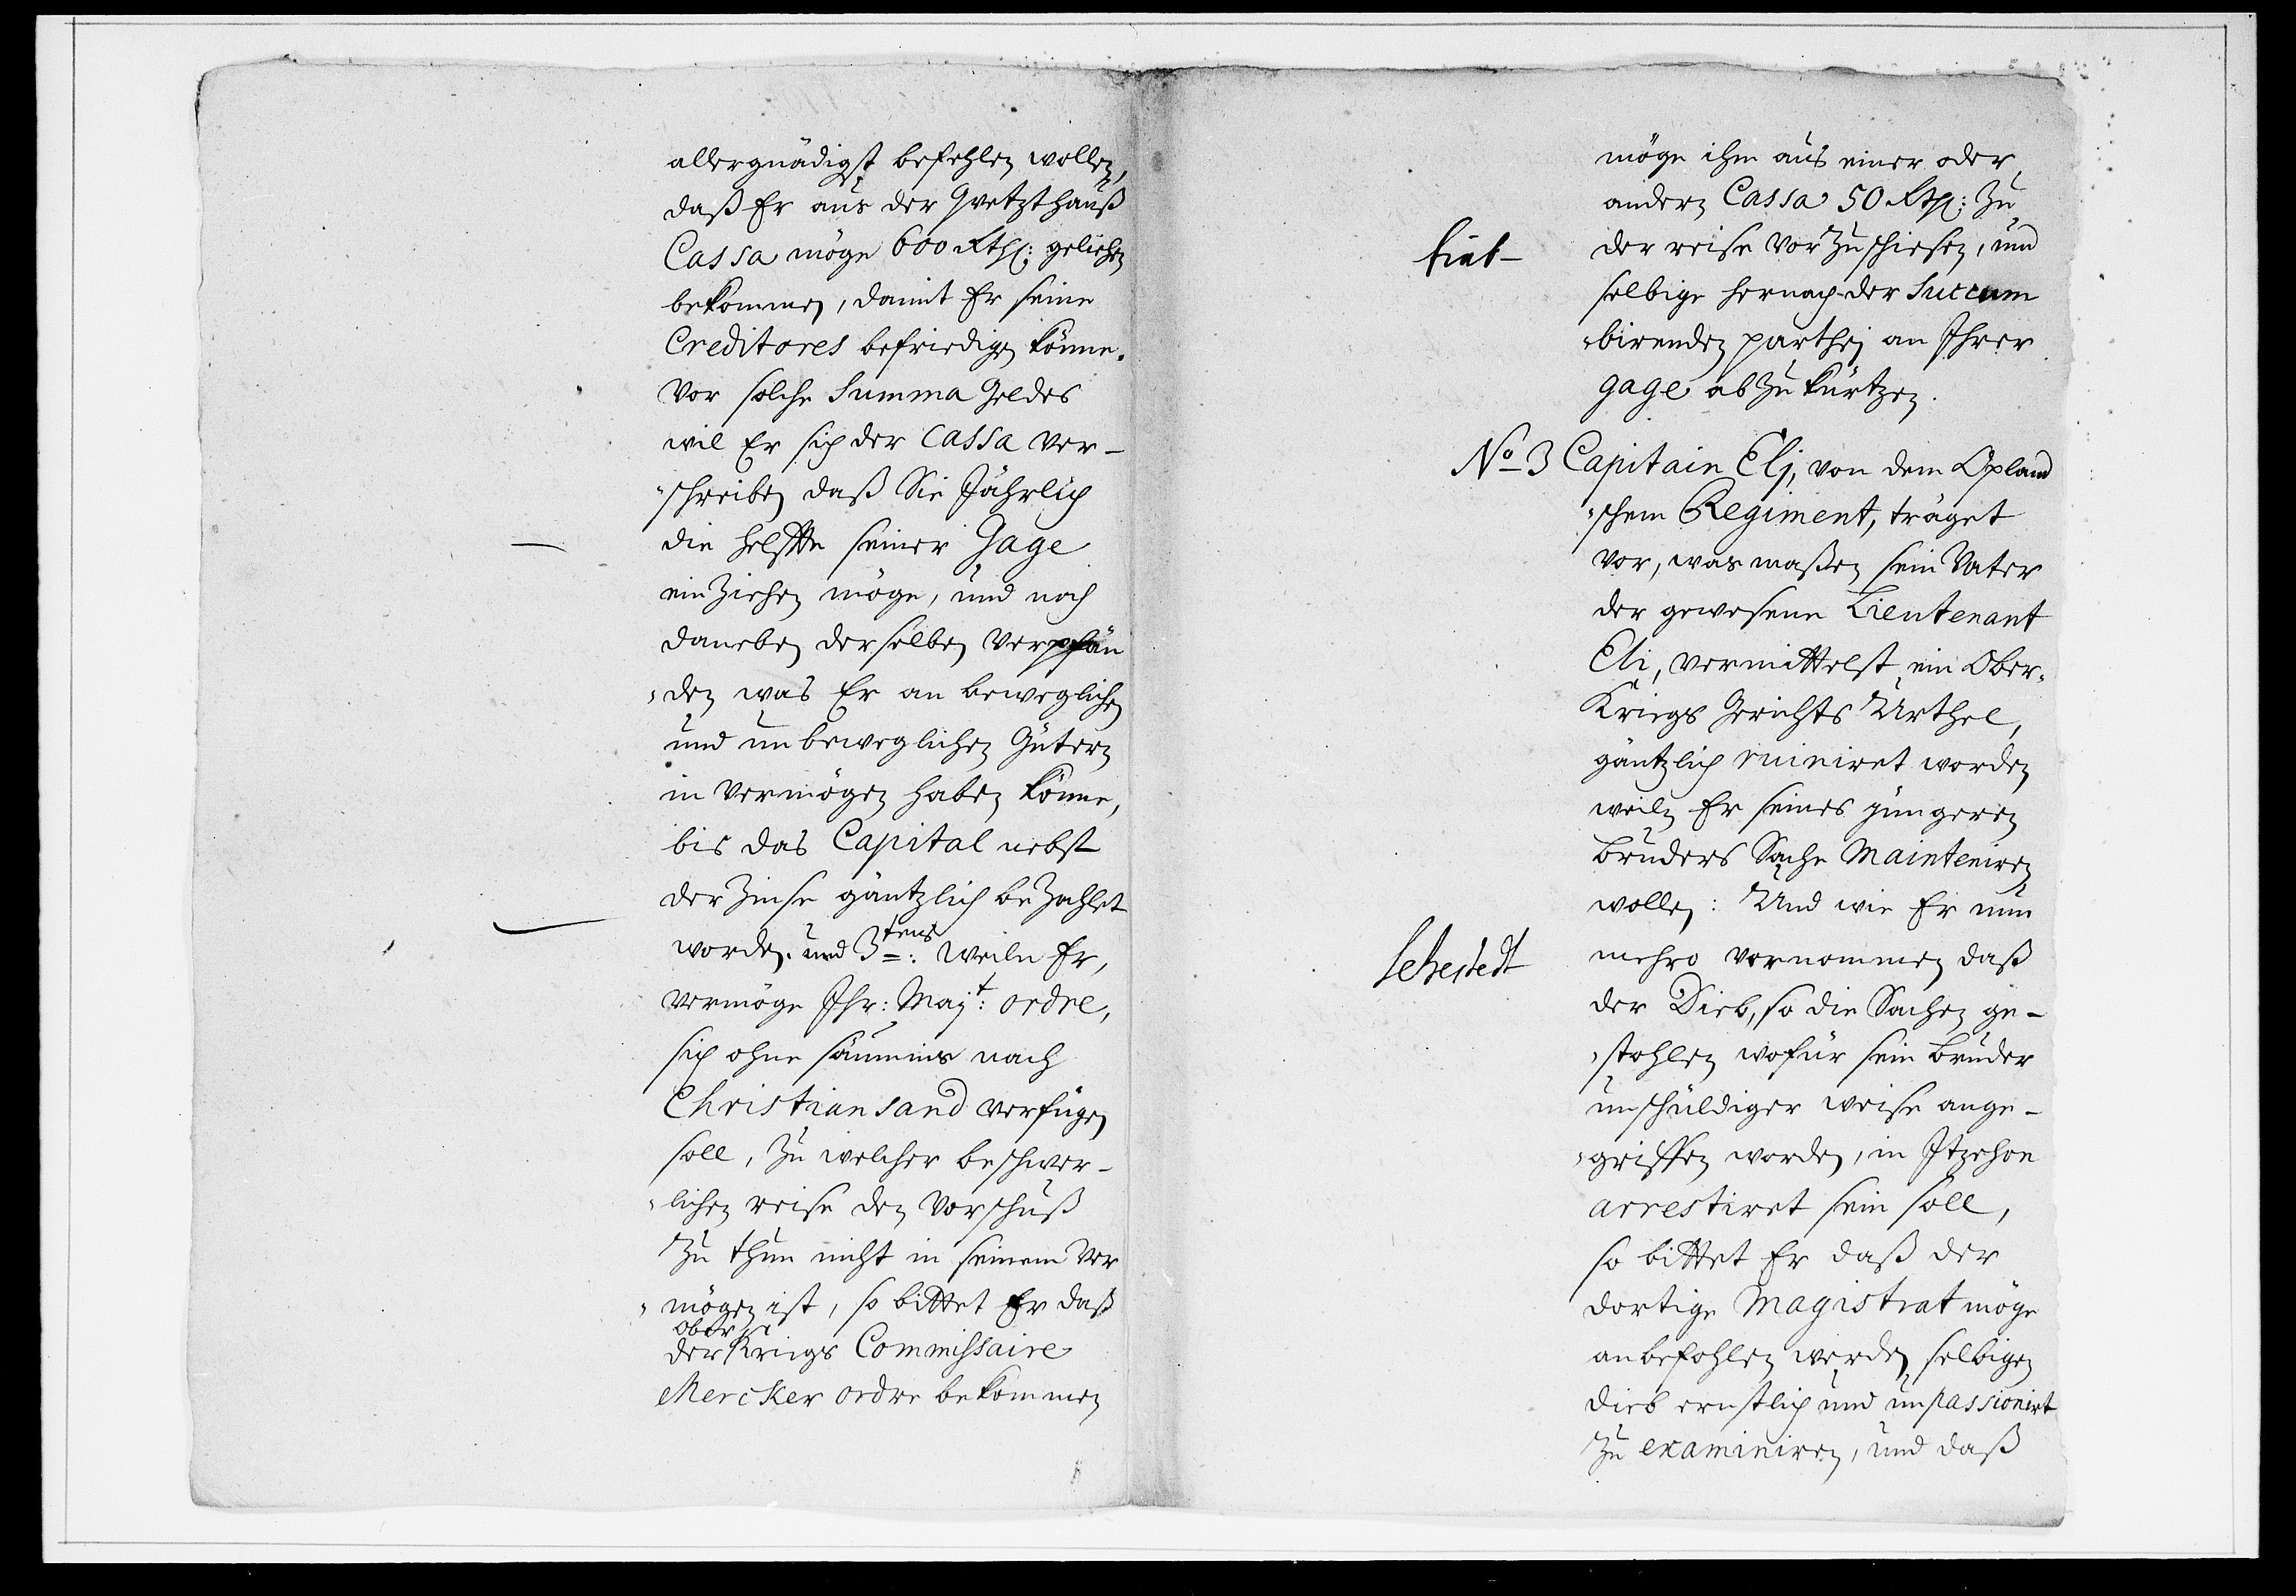 allergnädigst befehlen wollen,
daß Er aus der Qvetzthauß
Cassa möge 600 Rthl: geliehen
bekommen, damit Er seine
Creditores befriedigen könne.
Vor solche Summa Geldes
wil Er sich der Cassa ver-
"schreiben daß Sie Jährlich
die helffte seiner Gage
ein Ziehen möge, und noch
daneben derselben verpfän
"den was Er an beweglichen
und unbeweglichen Gütern
in Vermögen haben könne,
bis das Capital nebst
der Zinse gäntzlich beZahlet
worden. und 3tens: Weiln Er,
vermöge Ihr: Majt: ordre,
sich ohne säumnis nach
Christiansand verfügen
soll, Zu welcher beschwer-
"lichen reise den Vorschuß
Zu thun nicht in seinem Ver
"mögen ist, so bittet Er daß
der ober Kriegs Commissaire
Mercker ordre bekommen
möge ihm aus einer oder
andern Cassa 50 Rthl: Zu
fiat-
der reise vorZuschiesen, und
selbige hernach der Succum
"birenden parthej an Ihrer
gage abZukürtzen.
No 3 Capitain Elj, von dem Opland
"schem Regiment, träget
vor, was maßen sein Vater
der gewesene Lieutenant
Eli, vermittelst ein Ober-
Kriegs Gerichts Urthel,
gäntzlich ruiniret worden
weiln Er seines jüngeren
bruders Sache Mainteniren
wollen: Und wie Er nun
Sehestedt
mehro vernommen daß
der Dieb, so die Sachen ge-
"stohlen wofür sein bruder
unschuldiger weise ange-
"griffen worden, in Itzehoe
arrestiret sein soll,
so bittet Er daß der
dortige Magistrat möge
anbefohlen werden selbigen
dieb ernstlich und unpassionirt
Zu examiniren, und daß